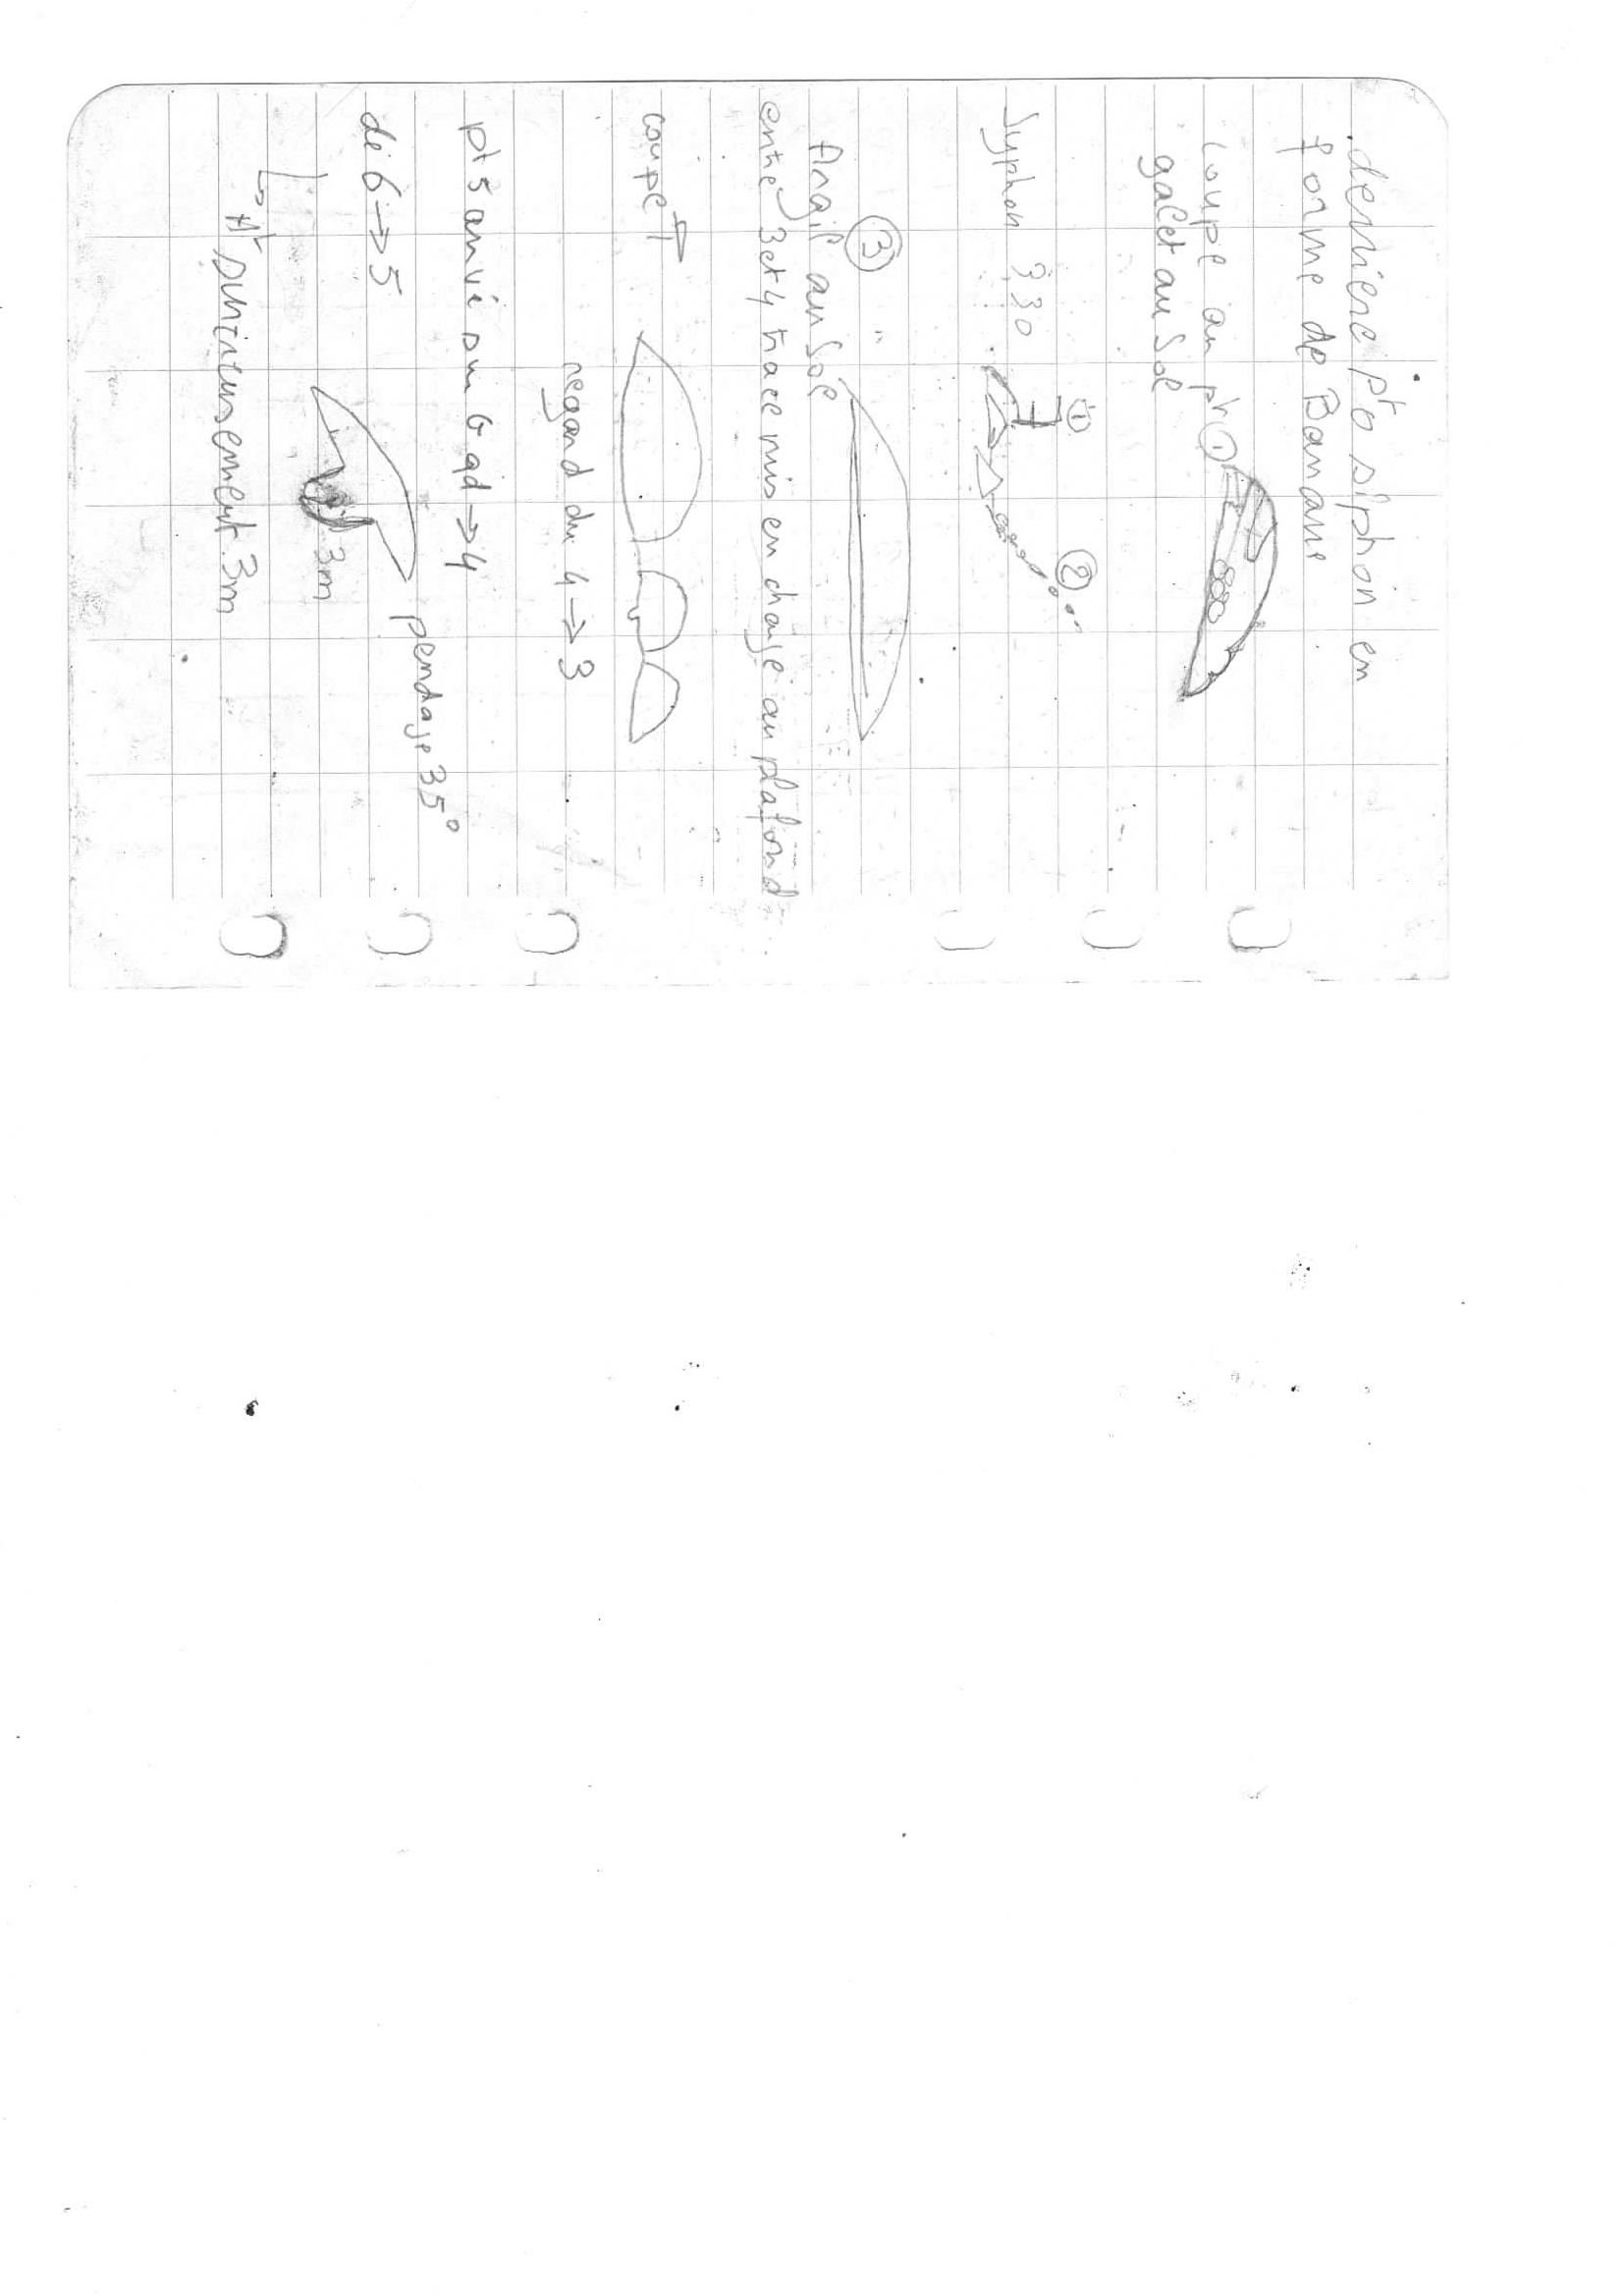 derniere pto siphon en
forme de Banane
coupe au pt ①
galet au sol
① ②
Syphon 330
③
Argil au Sol
entre 3 et 4 trace mis en charge au plafond
coupe
regard du 4 → 3
pt 5 arrivé sur 6 qd → 4
de 6 → 5
pendage 35°
3m
surcreusement 3m